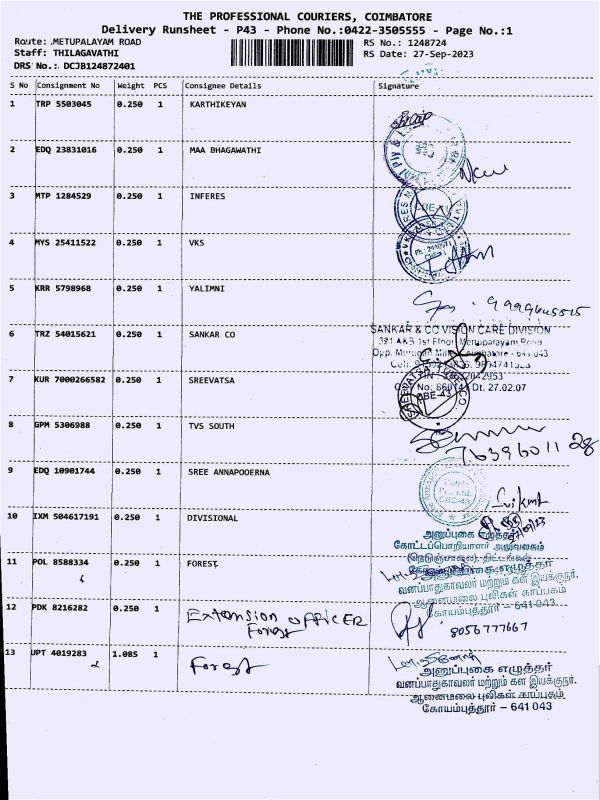 THE PROFESSIONAL COURIERS, COIMBATORE
Delivery Runsheet - P43 - Phone No.:0422-3505555 - Page No.:1
Route: METUPALAYAM ROAD RS No.: 1248724
Staff: THILAGAVATHI RS Date: 27-Sep-2023
DRS No.: DCJB124872401
S No Consignment No Weight PCS Consignee Details Signature
1 TRP 5503045 0.250 1 KARTHIKEYAN
2 EDQ 23831016 0.250 1 MAA BHAGAWATHI
3 MTP 1284529 0.250 1 INFERES
CBE-43
4 MYS 25411522 0.250 1 VKS
5 KRR 5798968 0.250 1 YALIMNI
SANKAR & CO VISION CARE DIVISION
6 TRZ 54015621 0.250 1 SANKAR CO
391 A&B 1st Floor Metupalayam Road
7 KUR 7000266582 0.250 1 SREEVATSA
Dt. 27.02.07
CBE-43
8 GPM 5306988 0.250 1 TVS SOUTH
7639601128
9 EDQ 10901744 0.250 1 SREE ANNAPOOERNA
10 IXM 504617191 0.250 1 DIVISIONAL
அனுப்புகை எழுத்தர்
கோட்டப்பொறியாளர் அலுவலகம்
11 POL 8588334 0.250 1 FOREST
வனப்பாதுகாவலர் மற்றும் கள இயக்குநர்,
ஆனைமலை புலிகள் காப்பகம்
கோயம்புத்தூர் – 641 043
12 PDK 8216282 0.250 1 Extension OFFICER
Forest
8056777667
13 UPT 4019283 1.085 1 Forest
அனுப்புகை எழுத்தர்
வனப்பாதுகாவலர் மற்றும் கள இயக்குநர்,
ஆனைமலை புலிகள் காப்பகம்
கோயம்புத்தூர் – 641 043